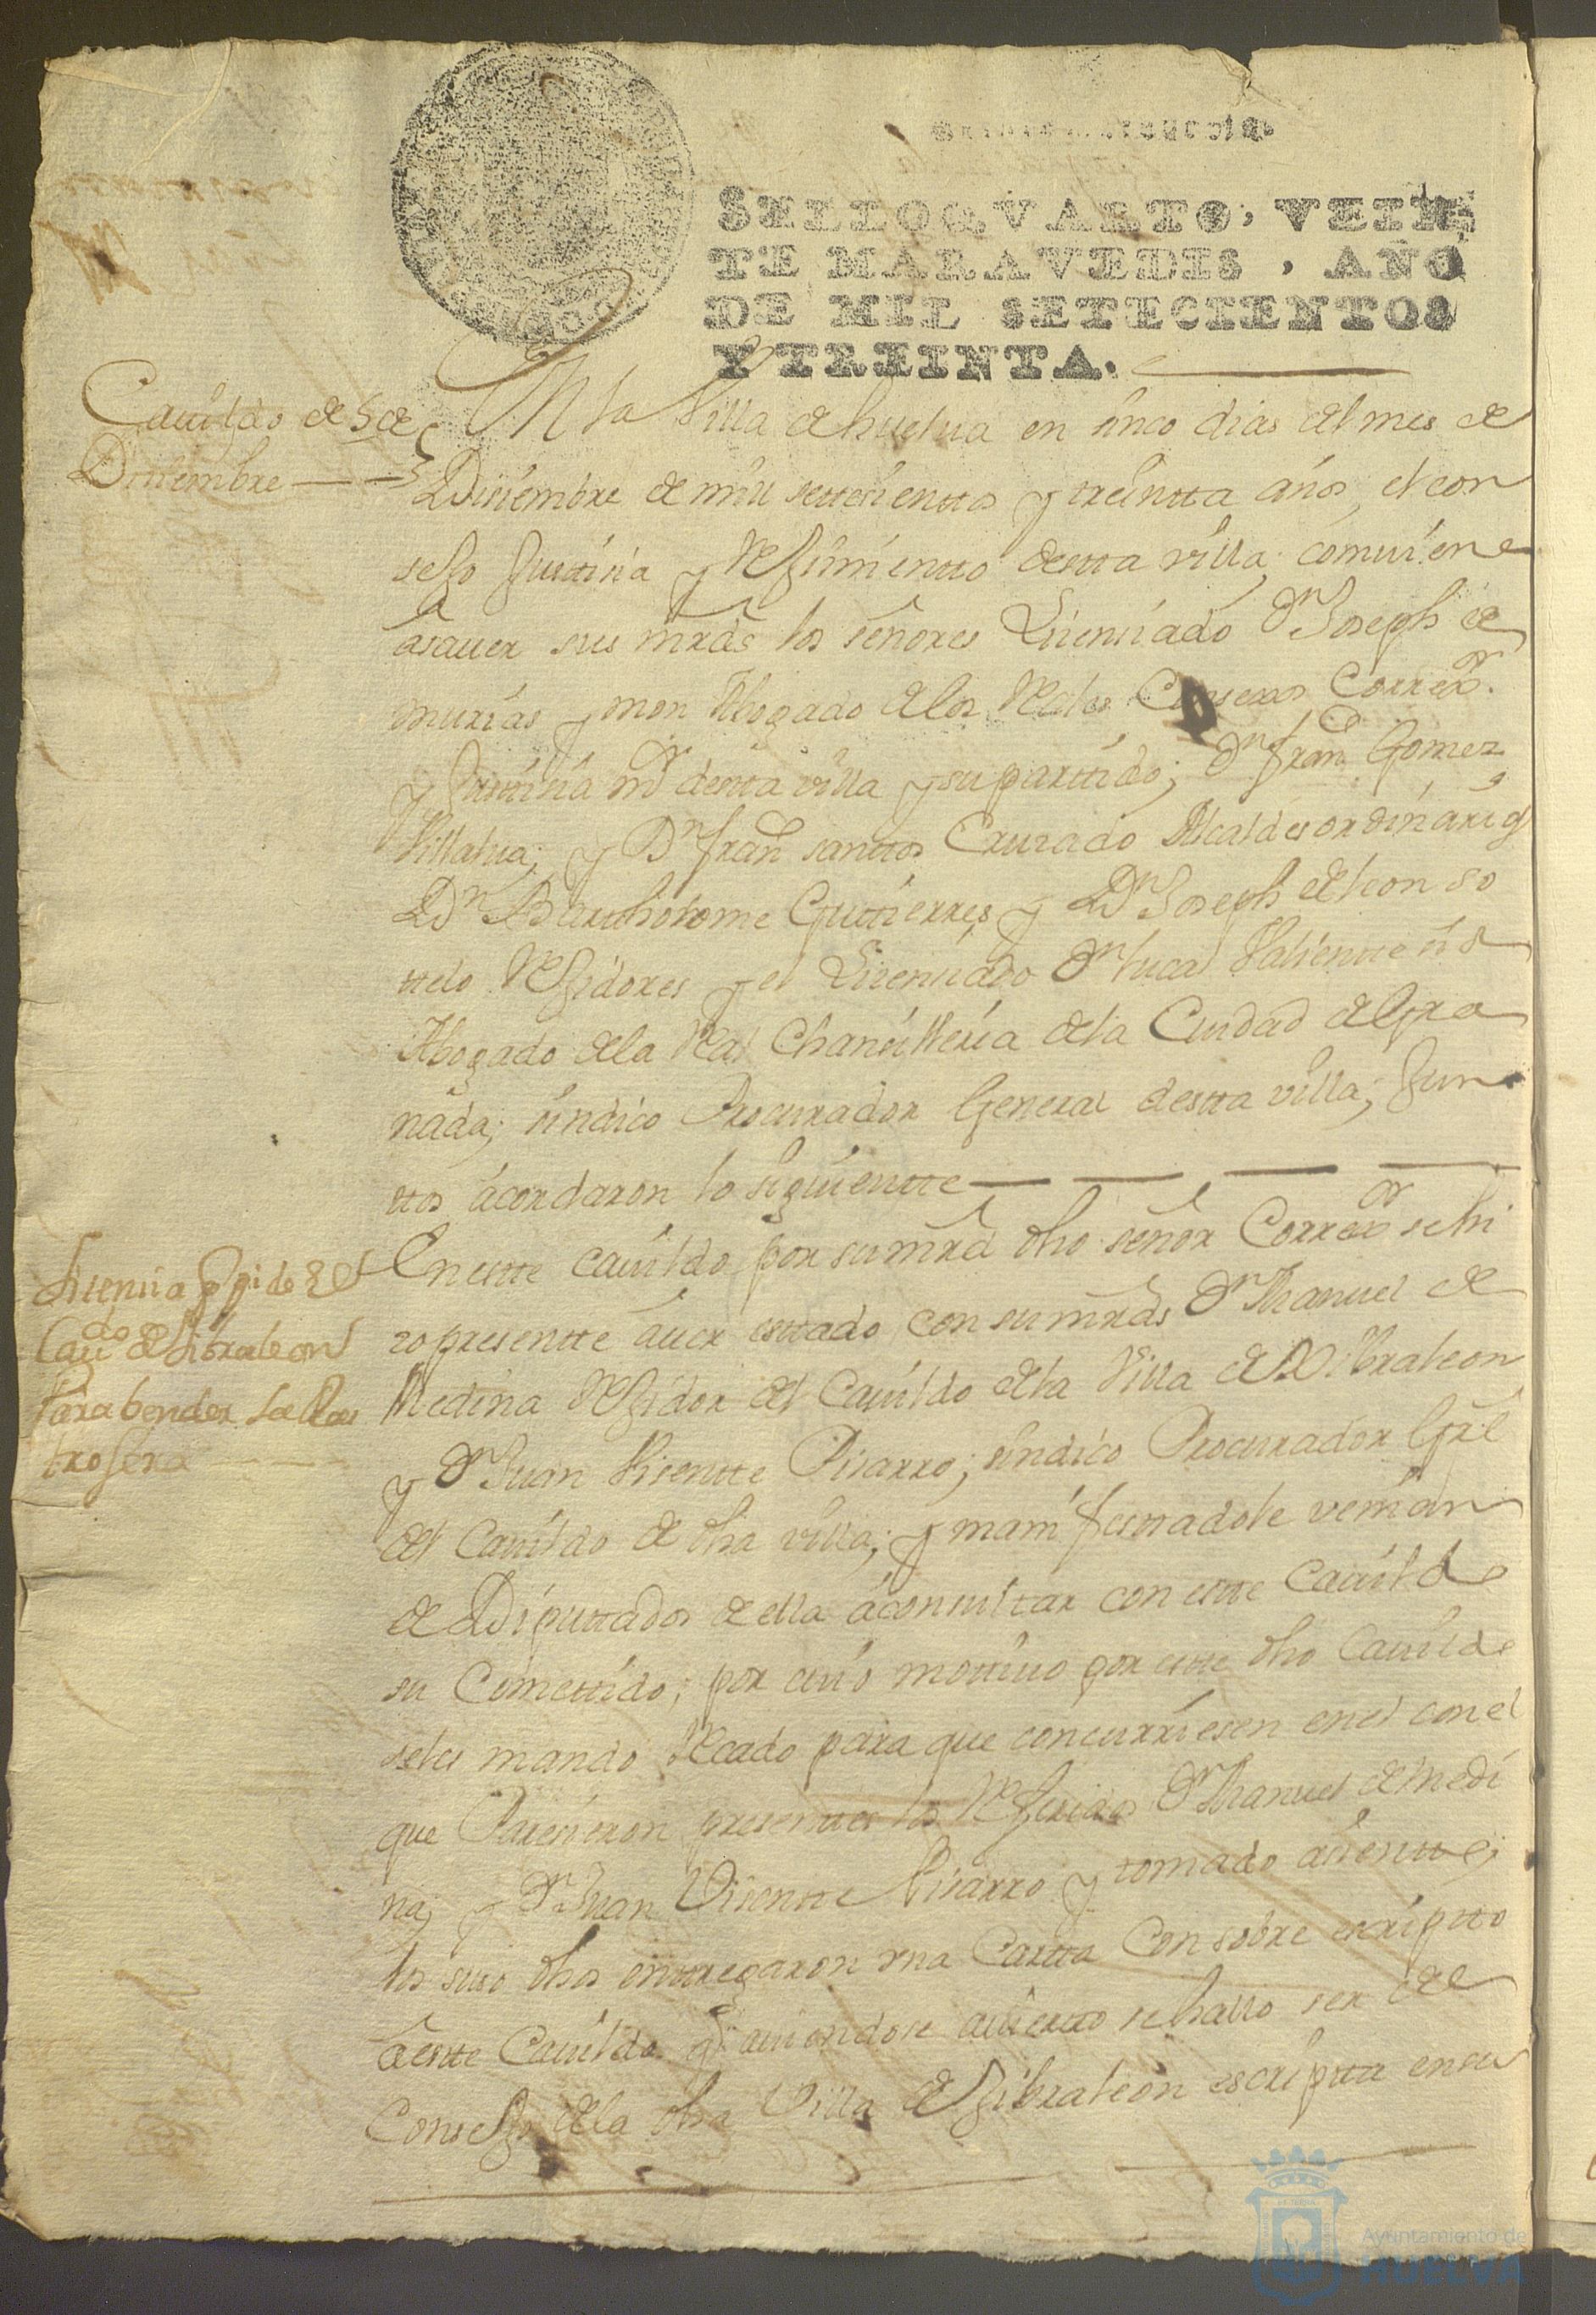 SELLO QVARTO, VEIN
TE MARAVEDIS, AÑO
DE MIL SETECIENTOS
Y TREINTA.
Cauildo de 5 de
Disiembre
En la Villa de huelua en sinco dias del mes de
Disiembre de mill settesienttos y treintta años, el con
sejo Justisia y Rejimientto destta villa, comuiene
asauer sus mrds los señores Lisensiado Dn Joseph de
murias y mon Abogado de los Rales Consexos Correxor
y Justisia mor destta villa y su parttido; Dn Franco Gomez
Villalua; y Dn Franco santtos Cruzado Alcaldes ordinarios
Dn Bartholome Gutierres y Dn Joseph de leon so
ttelo Rejidores y el Lisensiado Dn lucas Valientte
Abogado de la Real Chansilleria de la Ciudad de Gra
nada; sindico Procurador General destta villa; Jun
ttos acordaron lo siguientte
Lisensia q pide el
Caudo de Jibraleon
Para bender la Ras
trojera
En estte cauildo por su mrd dho señor Correxor se hi
zo presentte auer esttado con su mrds Dn Manuel de
Medina Rejidor del Cauildo de la Villa de Jibraleon
y Dn Juan Visentte Pisarro; sindico Procurador Grl
del Cauildo de dha villa; y manifesttadole venian
de Diputtados de ella a consultar con estte Cauildo
su Comettido; por cuio mottiuo por estte dho Cauildo
se les mando Recado para que concurriesen en el con el
que Paresieron presenttes los Referidos Dn Manuel de Medi
na; y Dn Juan Visentte Pisarro y tomado asientte;
los suso dhos enttregaron vna Cartta Con sobre escriptto
a estte Cauildo q auiendose auiertto se hallo ser de el
Consejo de la dha Villa de Jibraleon escriptta en su
Ayuntamiento de
HUELVA